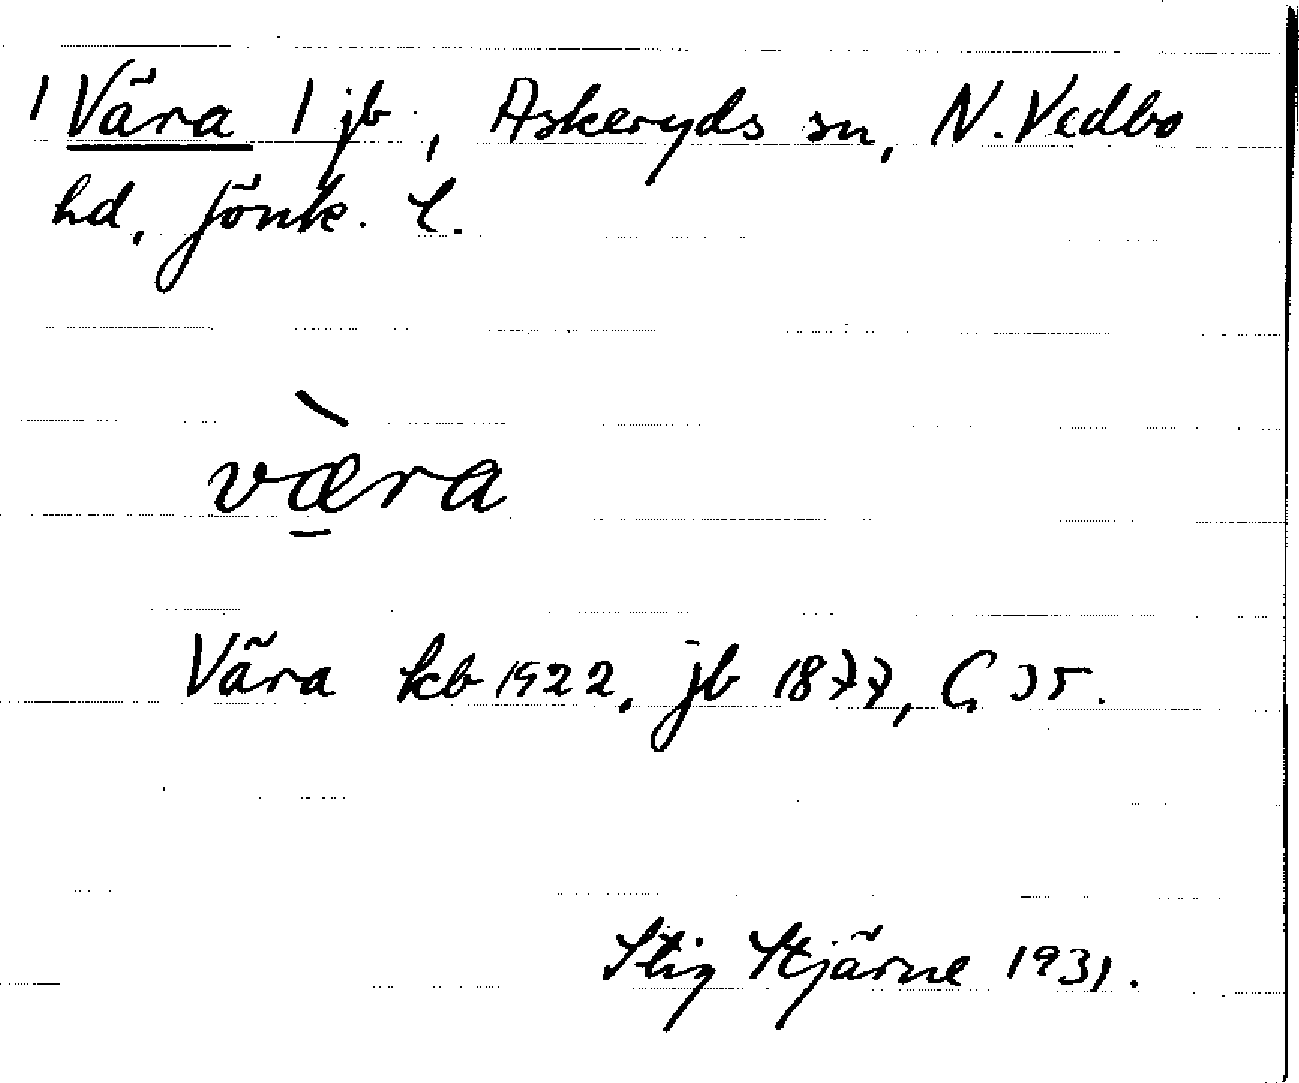 1 Vära 1 jb, Askeryds sn, N. Vedbo
hd, Jönk. l.
væ̠̀ra
Vära kb 1922, jb 1877, G 35.
Stig Stjärne 1931.